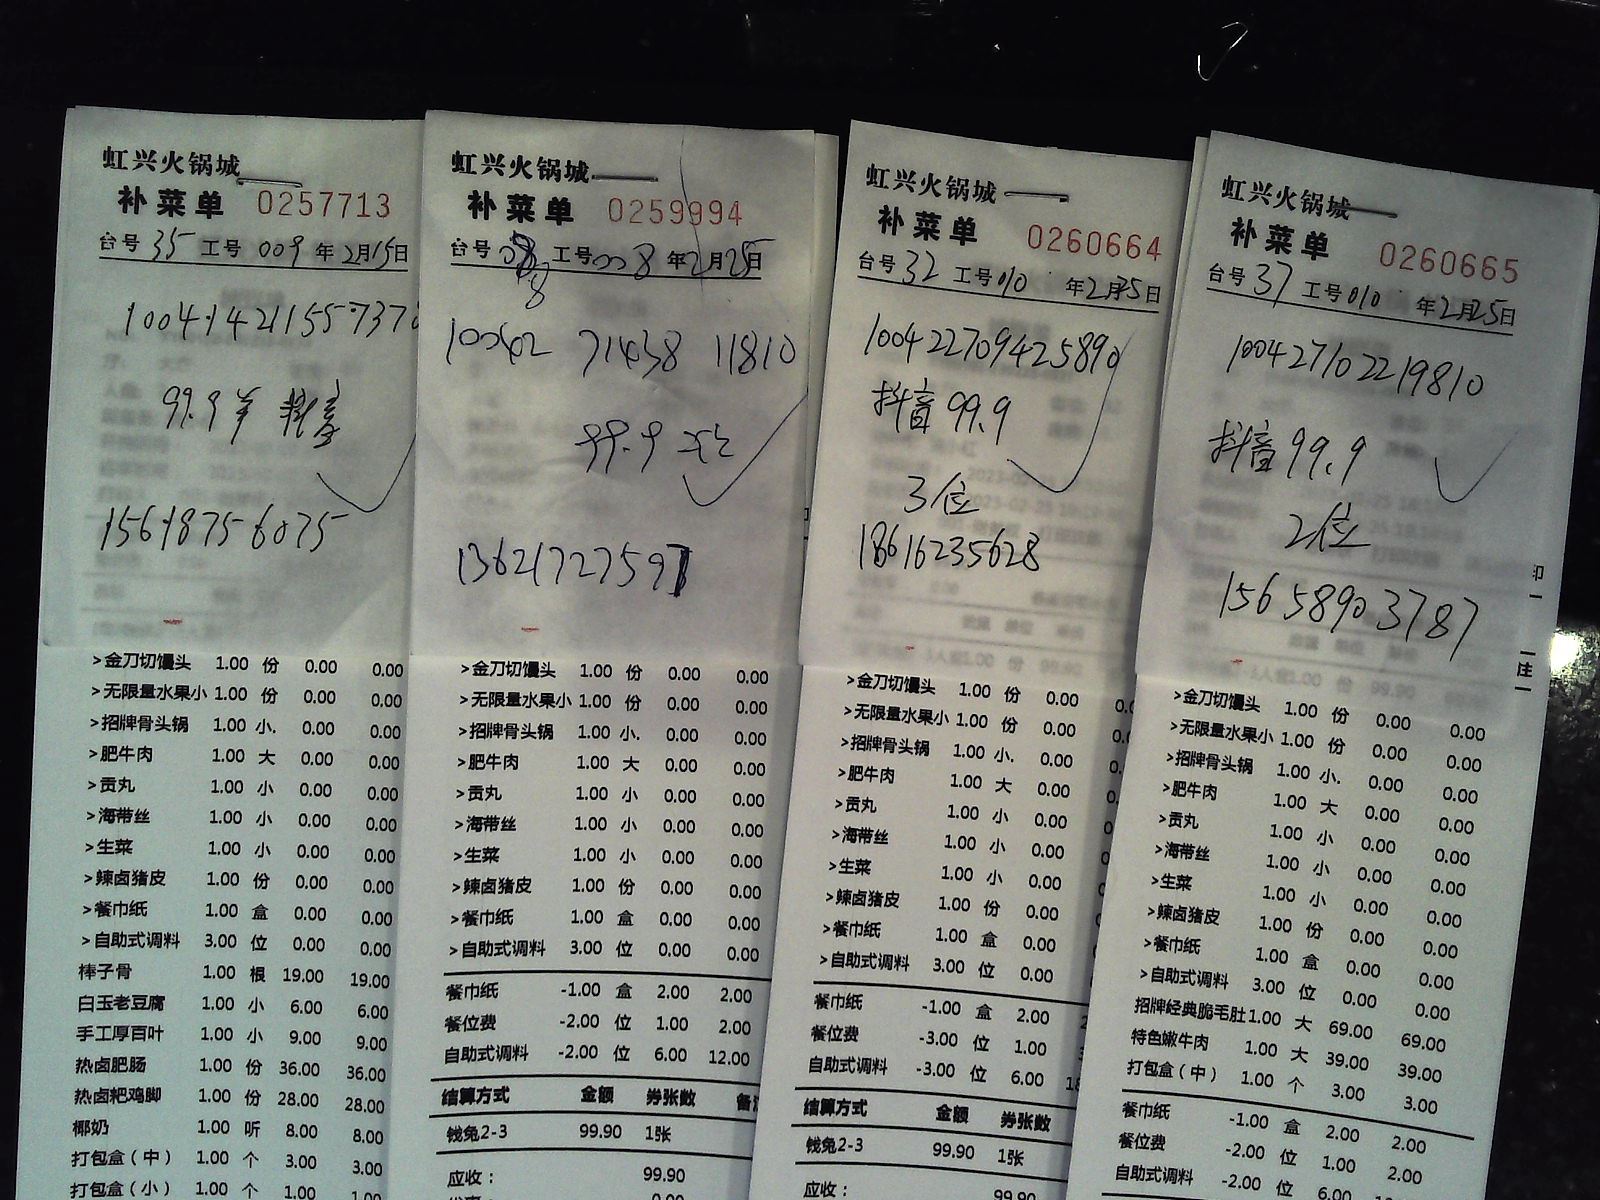 虹兴火锅城
补菜单 0257713
台号 35 工号 009 年2月15日
99.9
15618756075
>金刀切馒头 1.00 份 0.00 0.00
>无限量水果小 1.00 份 0.00 0.00
>招牌骨头锅 1.00 小. 0.00 0.00
>肥牛肉 1.00 大 0.00 0.00
>贡丸 1.00 小 0.00 0.00
>海带丝 1.00 小 0.00 0.00
>生菜 1.00 小 0.00 0.00
>辣卤猪皮 1.00 份 0.00 0.00
>餐巾纸 1.00 盒 0.00 0.00
>自助式调料 3.00 位 0.00 0.00
棒子骨 1.00 根 19.00 19.00
白玉老豆腐 1.00 小 6.00 6.00
手工厚百叶 1.00 小 9.00 9.00
热卤肥肠 1.00 份 36.00 36.00
热卤耙鸡脚 1.00 份 28.00 28.00
椰奶 1.00 听 8.00 8.00
打包盒（中） 1.00 个 3.00 3.00
打包盒（小） 1.00 个 1.00 1.00
虹兴火锅城
补菜单 0259994
台号 工号 008 年2月25日
10042 71438 11810
99.9
13621727597
>金刀切馒头 1.00 份 0.00 0.00
>无限量水果小 1.00 份 0.00 0.00
>招牌骨头锅 1.00 小. 0.00 0.00
>肥牛肉 1.00 大 0.00 0.00
>贡丸 1.00 小 0.00 0.00
>海带丝 1.00 小 0.00 0.00
>生菜 1.00 小 0.00 0.00
>辣卤猪皮 1.00 份 0.00 0.00
>餐巾纸 1.00 盒 0.00 0.00
>自助式调料 3.00 位 0.00 0.00
餐巾纸 -1.00 盒 2.00 2.00
餐位费 -2.00 位 1.00 2.00
自助式调料 -2.00 位 6.00 12.00
结算方式 金额 券张数 备
钱兔2-3 99.90 1张
应收： 99.90
虹兴火锅城
补菜单 0260664
台号 32 工号 010 年2月25日
100422709425890
抖音 99.9
3位
18616235628
>金刀切馒头 1.00 份 0.00
>无限量水果小 1.00 份 0.00
>招牌骨头锅 1.00 小. 0.00
>肥牛肉 1.00 大 0.00
>贡丸 1.00 小 0.00
>海带丝 1.00 小 0.00
>生菜 1.00 小 0.00
>辣卤猪皮 1.00 份 0.00
>餐巾纸 1.00 盒 0.00
>自助式调料 3.00 位 0.00
餐巾纸 -1.00 盒 2.00
餐位费 -3.00 位 1.00
自助式调料 -3.00 位 6.00
结算方式 金额 券张数
钱兔2-3 99.90 1张
应收： 99.90
虹兴火锅城
补菜单 0260665
台号 37 工号 010 年2月25日
100427102219810
抖音 99.9
2位
15658903787
>金刀切馒头 1.00 份 0.00 0.00
>无限量水果小 1.00 份 0.00 0.00
>招牌骨头锅 1.00 小. 0.00 0.00
>肥牛肉 1.00 大 0.00 0.00
>贡丸 1.00 小 0.00 0.00
>海带丝 1.00 小 0.00 0.00
>生菜 1.00 小 0.00 0.00
>辣卤猪皮 1.00 份 0.00 0.00
>餐巾纸 1.00 盒 0.00 0.00
>自助式调料 3.00 位 0.00 0.00
招牌经典脆毛肚 1.00 大 69.00 69.00
特色嫩牛肉 1.00 大 39.00 39.00
打包盒（中） 1.00 个 3.00 3.00
餐巾纸 -1.00 盒 2.00 2.00
餐位费 -2.00 位 1.00 2.00
自助式调料 -2.00 位 6.00